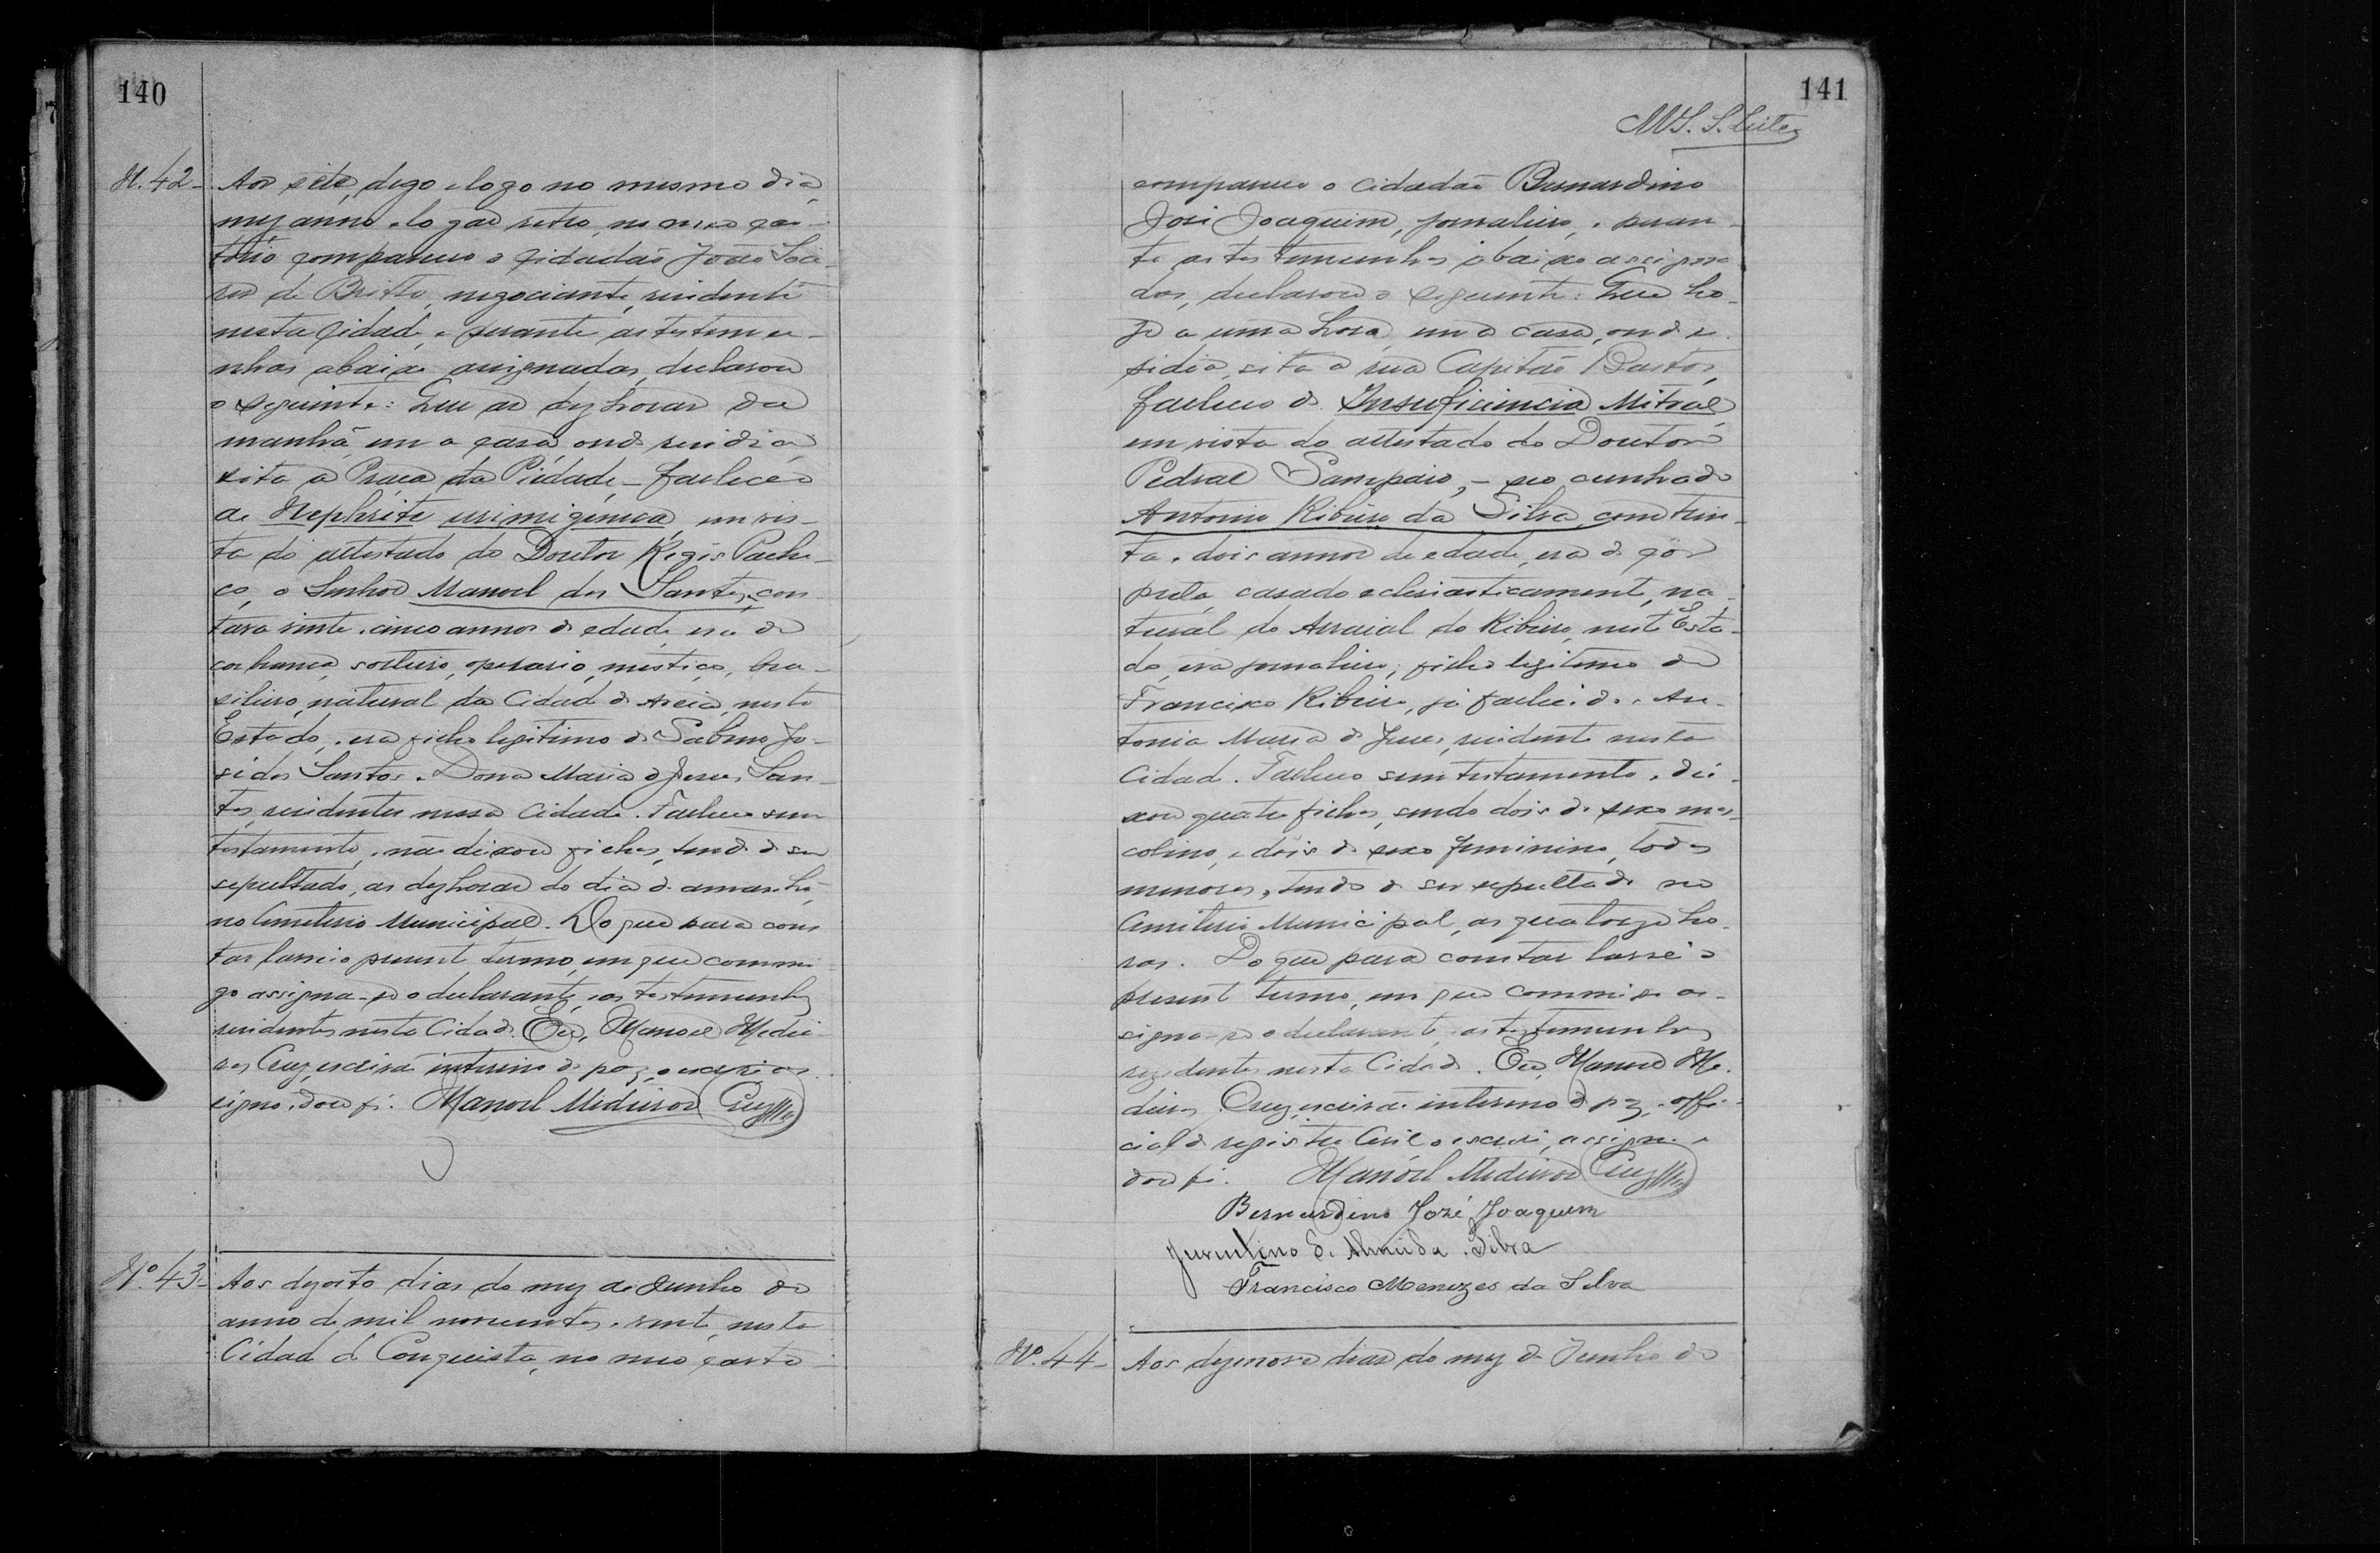 140
N. 42 - Aos sete, digo e logo no mesmo dia,
mez, anno e logar retro, no meu car-
tório compareceu o cidadão João Soa-
res de Britto, negociante, residente
nesta Cidade, e perante as testemu-
nhas abaixo assignadas, declarou
o seguinte: Que as dez horas da
manhã em a casa, onde residia,
sita a Praça da Piedade - falleceo
de Nephrite em vis-
ta do attestado do Doutor Regis Pache-
co, o Senhor Manoel dos Santos, con-
tava vinte e cinco annos de edade, era de
cor branca, solteiro, operario, mestiço, bra-
sileiro, natural da Cidade de Areia, neste
Estado, era filho legitimo de Sabino Jo-
sé dos Santos e Dona Maria de Jesus San-
tos, residentes nessa Cidade. Falleceu sem
testamento, não deixou filhos, tendo de ser
sepultado, as dez horas do dia de amanhã,
no Cemiterio Municipal. Do que para cons
tar lavrei o presente termo, em que commi-
go assigna-se o declarante, e as testemunhas
residentes nesta Cidade. Eu, Manoel Medei-
ros Cruz, escrivão interino de paz, o escrevi as
signo, dou fé. Manoel Medeiros Cruz
Nº. 43 - Aos dezoito dias do mez de Junho do
anno de mil novecentos e vinte, nesta
Cidade de Conquista, no meu carto-
141
compareceu o cidadão Bernardino
José Joaquim, jornaleiro, e peran-
te as testemunhas abaixo assigna
das, declarou o seguinte: Que ho-
je a uma hora, em a casa, onde re
sidia, sita a rua Capitão Bastos,
falleceo de Insuficiencia Mitral,
em vista do attestado do Doutor
Pedral Sampaio, - seo cunhado
Antonio Ribeiro da Silva, com trin-
ta e dois annos de edade, era de côr
preta, casado eclesiasticamente, na-
tural do Arraial do Ribeiro, neste Esta-
do, era jornaleiro, filho legitimo de
Francisco Ribeiro, já fallecido e An-
tonia Maria de Jesus, residente nesta
Cidade. Falleceo sem testamento, dei-
xou quatro filhos, sendo dois do sexo mas-
colino, e dois do sexo feminino, todos
menores, tendo de ser sepultado no
Cemiterio Municipal, as quatorze ho-
ras. Do que para constar lavrei o
presente termo, em que commigo as-
signa-se o declarante, e as testemunhas
residentes nesta Cidade. Eu, Manoel Me-
deiros Cruz, escrivão interino de paz, e offi-
cial do registro Civil o escrevi, assigno e
dou fé. Manoel Medeiros Cruz
Bernardino José Joaquim
Juventino S. Almeida Silva
Francisco Menezes da Silva
Nº. 44 - Aos dezenove dias do mez de Junho do